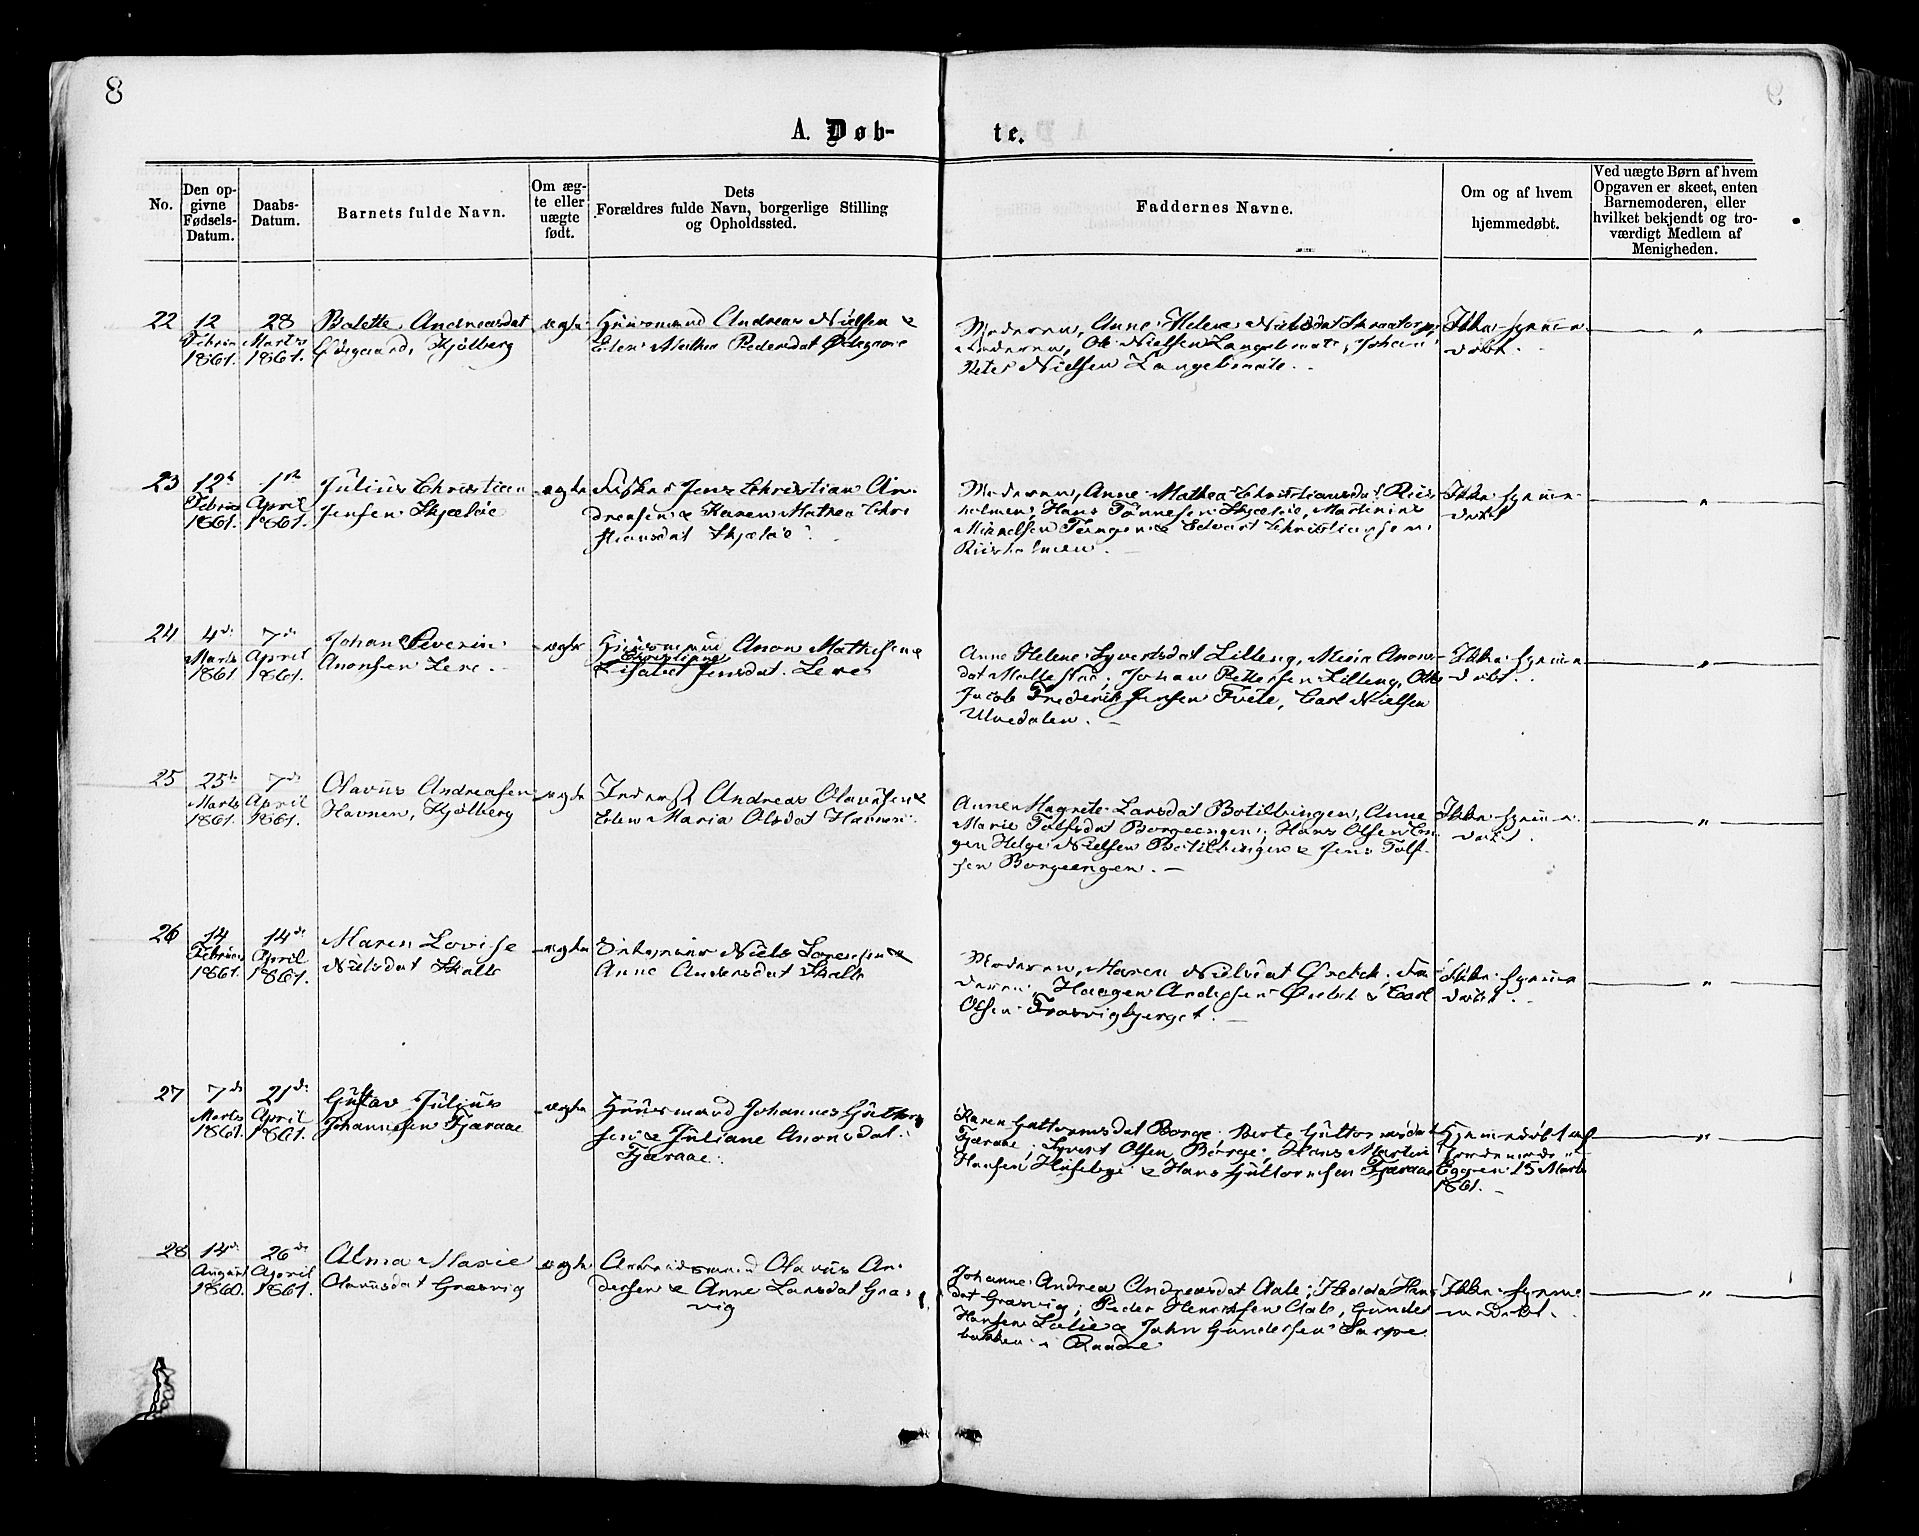 8
A. Døb-
te.
No.
Den op-
givne
Fødsels-
Datum.
Daabs-
Datum.
Barnets fulde Navn.
Om æg-
te eller
uægte
født.
Dets
Forældres fulde Navn, borgerlige Stilling
og Opholdssted.
Faddernes Navne.
Om og af hvem
hjemmedøbt.
Ved uægte Børn af hvem
Opgaven er skeet, enten
Barnemoderen, eller
hvilket bekjendt og tro-
værdigt Medlem af
Menigheden.
22
12
1861.
28
Marts
1861.
Andreasdat
Kjølberg
ægte
Huusmand Andreas Nielsen &
Mathea Pedersdat
Moderen, Anne Helene Nielsdat
Ole Nielsen Johan
Peter Nielsen
Ikke hjemme
døbt.
23
12te
Februar
1861.
1ste
April
1861.
Julius Christian
Jensen Skjæløe
ægte
Fisker Jens Christian An-
dreasen & Karen Mathea Chri
stiansdat Skjæløe
Moderen, Anne Mathea Christiansdat Riis
holmen, Hans Tønnesen Skjæløe, Martinius
Mikkelsen Tangen & Edvart Christiansen
Riisholmen.
Ikke hjemme
døbt
24
4de
Marts
1861
7de
April
1861.
Johan Severin
Anonsen Lere.
ægte
Huusmand Anon Mathisen &
Christiane
Elisabet Jensdat. Lere
Anne Helene Syvertsdat Lilleng, Maria Anons-
dat Johan Pettersen Lilleng, Ole
Jacob Frederik Jensen Tvete, Carl Nielsen
Ulvedalen.
Ikke hjemme
døbt.
25
25de
Marts
1861.
7de
April
1861.
Olavus Andreasen
Havnen, Kjølberg
ægte
Inderst Andreas Olavusen &
Elen Maria Olsdat Havnen
Anne Magrete Larsdat Anne
Marie Tolfsdat Borgeengen, Hans Olsen En
gen Helge Nielsen & Jens Tolf
sen Borgeengen.
Ikke hjemme
døbt.
26
14
Februar
1861.
14de
April
1861.
Maren Lovise
Nielsdat Skalle
ægte
Niels Sørensen &
Anne Andersdat Skalle
Moderen, Maren Nielsdat Fa
deren, Haagen Andersen & Carl
Olsen Græsvigbjerget.
Ikke hjemme
døbt.
27
7de
Marts
1861.
21de
April
1861.
Gustav Julius
Johannesen Fjæraae
ægte
Huusmand Johannes Guttorm
sen & Juliane Anonsdat
Fjæraae.
Karen Guttormsdat Borge, Berte Guttormsdat
Fjæraae, Syvert Olsen Borge, Hans Martin
Hansen Huseby & Hans Guttormsen Fjæraae
Hjemmedøbt af
Jordemoder
Eggen 15 Marts
1861.
28
14de
August
1860.
26de
April
1861.
Alma Marie
Olavusdat Græsvig
ægte
Arbeidsmand Olavus An-
dersen & Anne Larsdat Græs
vig
Johanne Andrea Andreasdat Aale; Hans
dat Græsvig; Peder Henriksen Aale, Gunder
Hansen & John Gundersen Sarpe
bakken i Raade
Ikke hjem
medøbt.